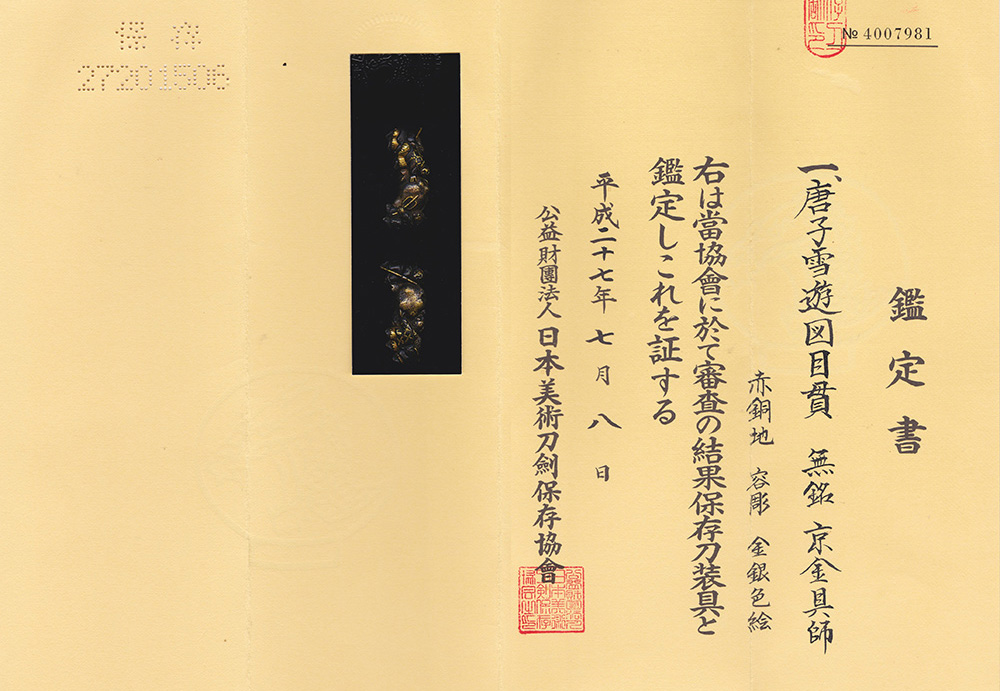 № 4007981
鑑定書
一、唐子雪遊図目貫 無銘 京金具師
赤銅地 容彫 金銀色絵
右は當協會に於て審査の結果保存刀装具と
鑑定しこれを証する
平成二十七年七月八日
公益財團法人 日本美術刀劍保存協會
保存
27201506